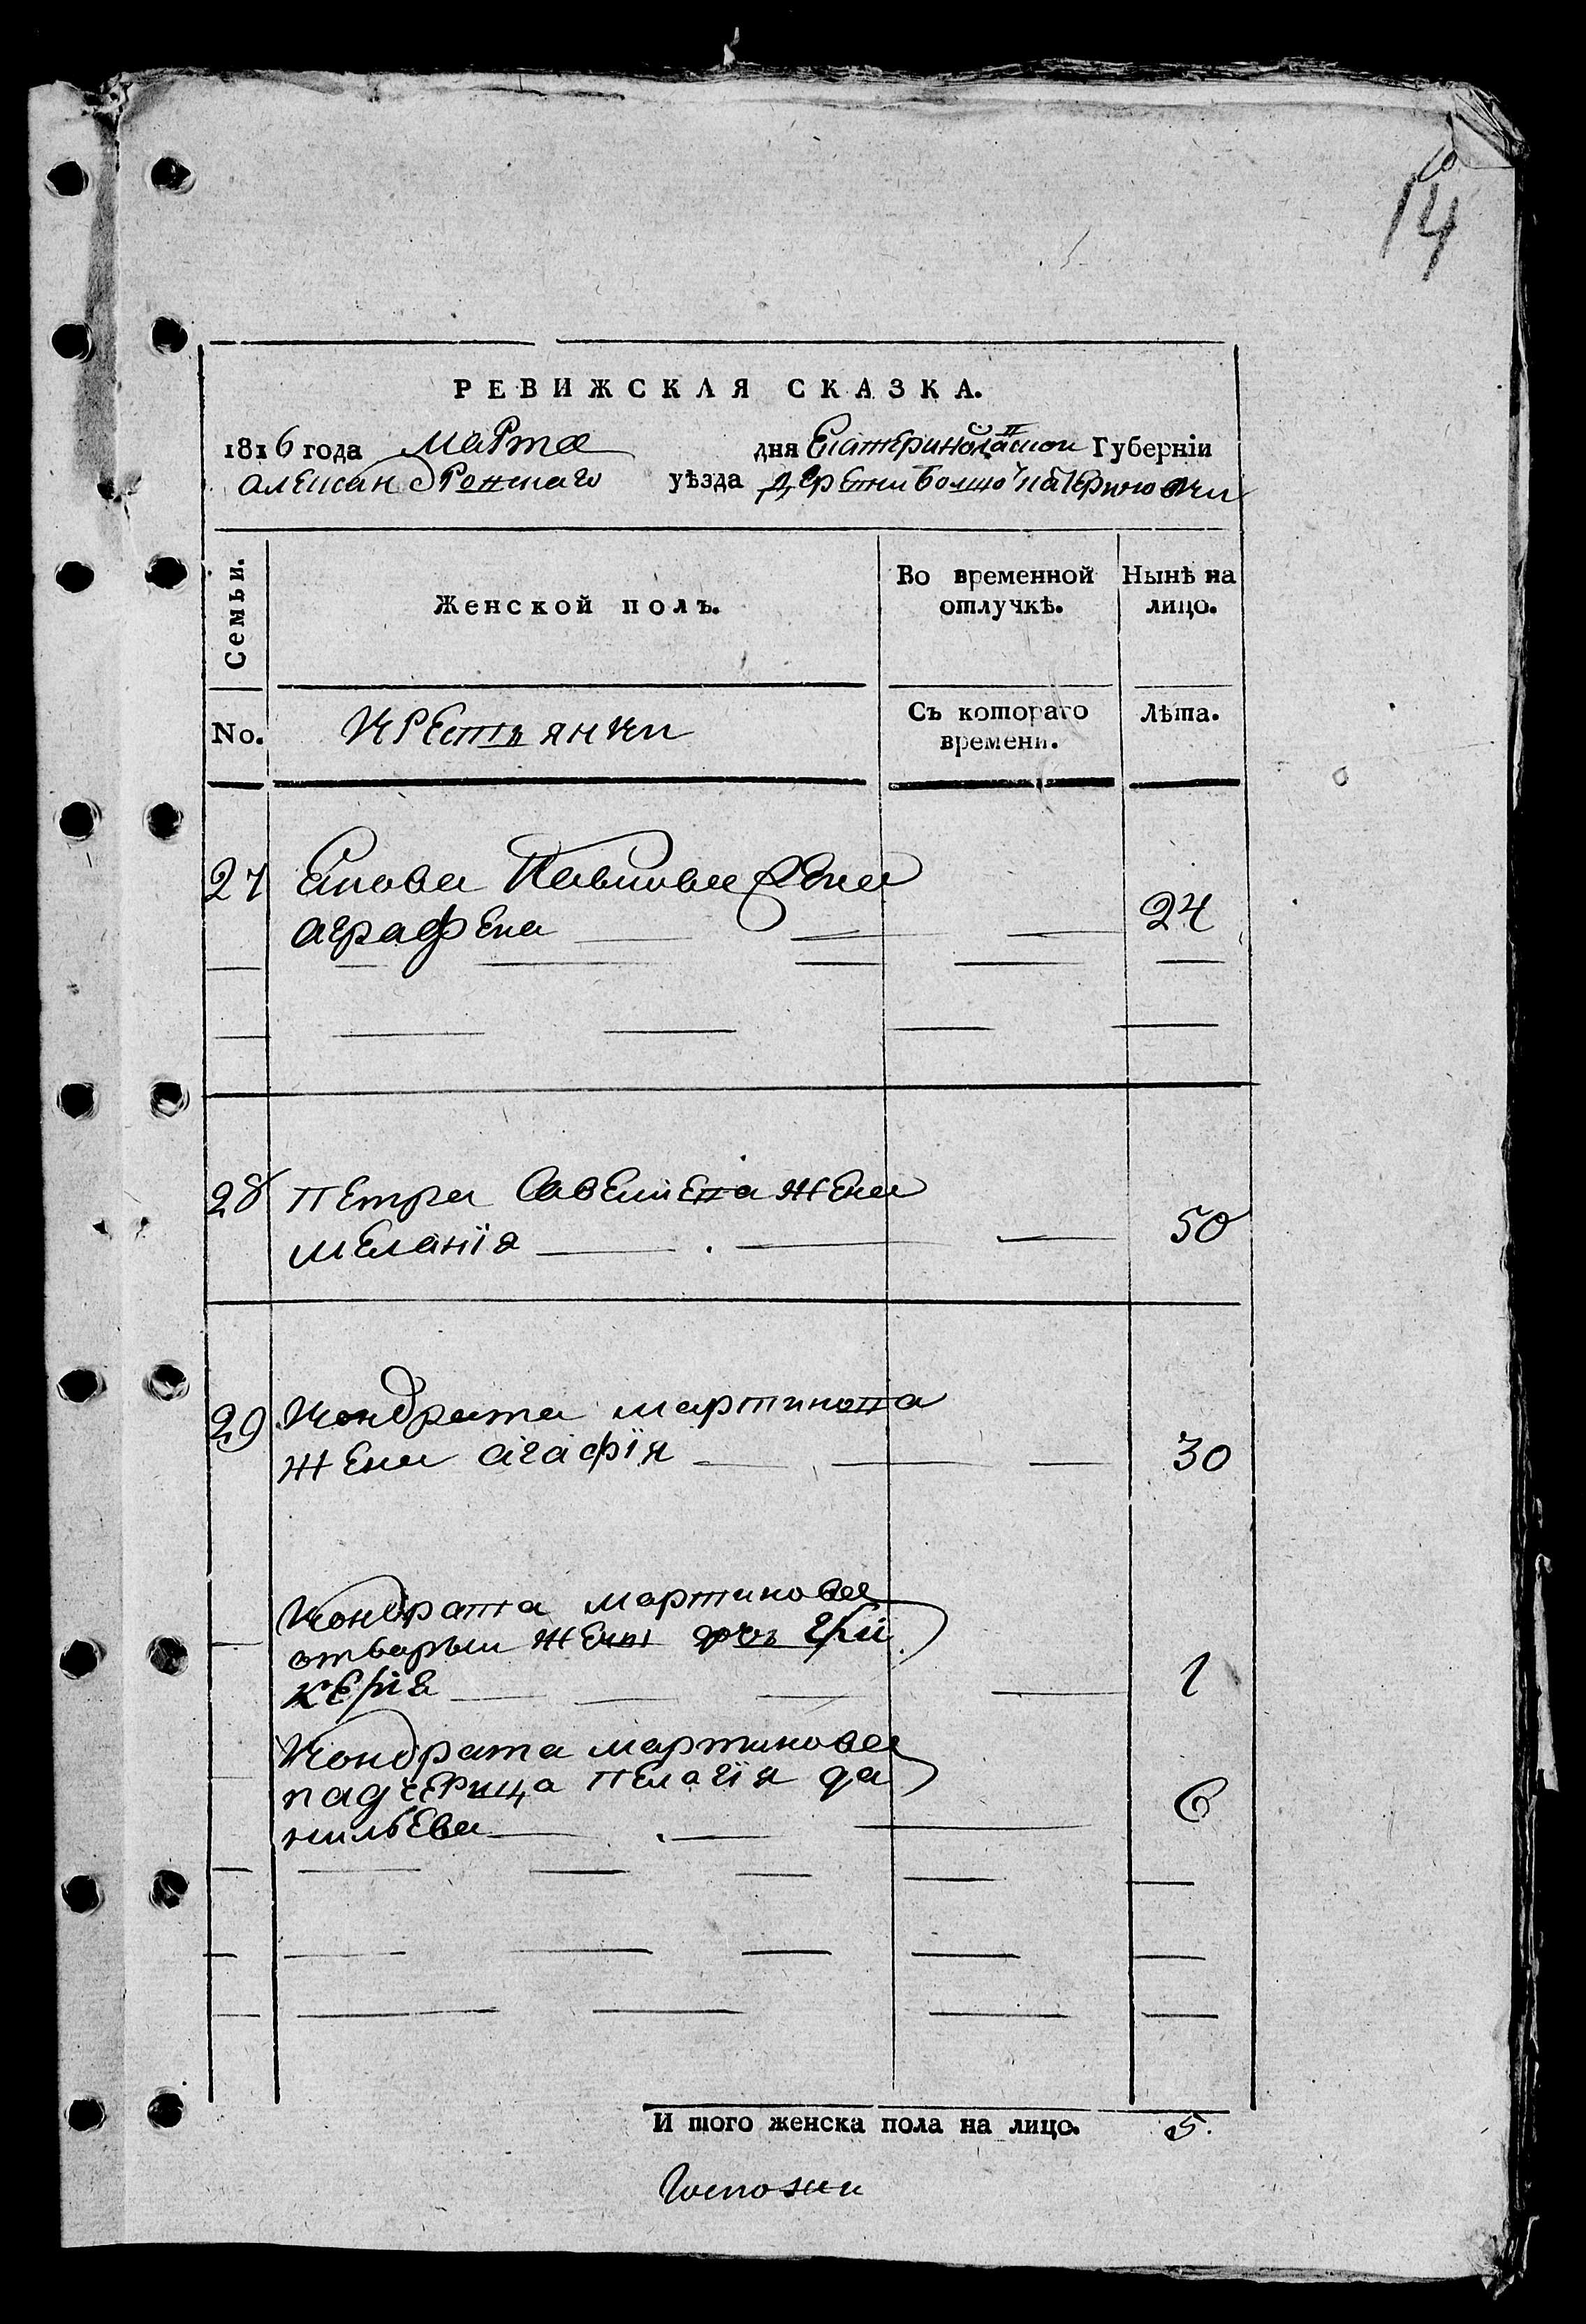 14
РЕВИЖСКАЯ СКАЗКА.
1816 года марта дня Екатеринославской Губерніи
александренскаго уѣзда деревни
Семьи.
Женской полъ.
Во временной отлучкѣ.
Нынѣ на лицо.
No.
Крестьянки
Съ котораго времени.
Лѣта.
27 Якова Павлова жена
аграфена 24
28 Петра Савельева жена
меланія 50
29 Кондрата мартинова
жена агафія 30
Кондрата мартинова
отвторьїи жены дочь гли
керія 1
Кондрата мартинова
падчерица пелагія да
нильева 6
И того женска пола на лицо. 5.